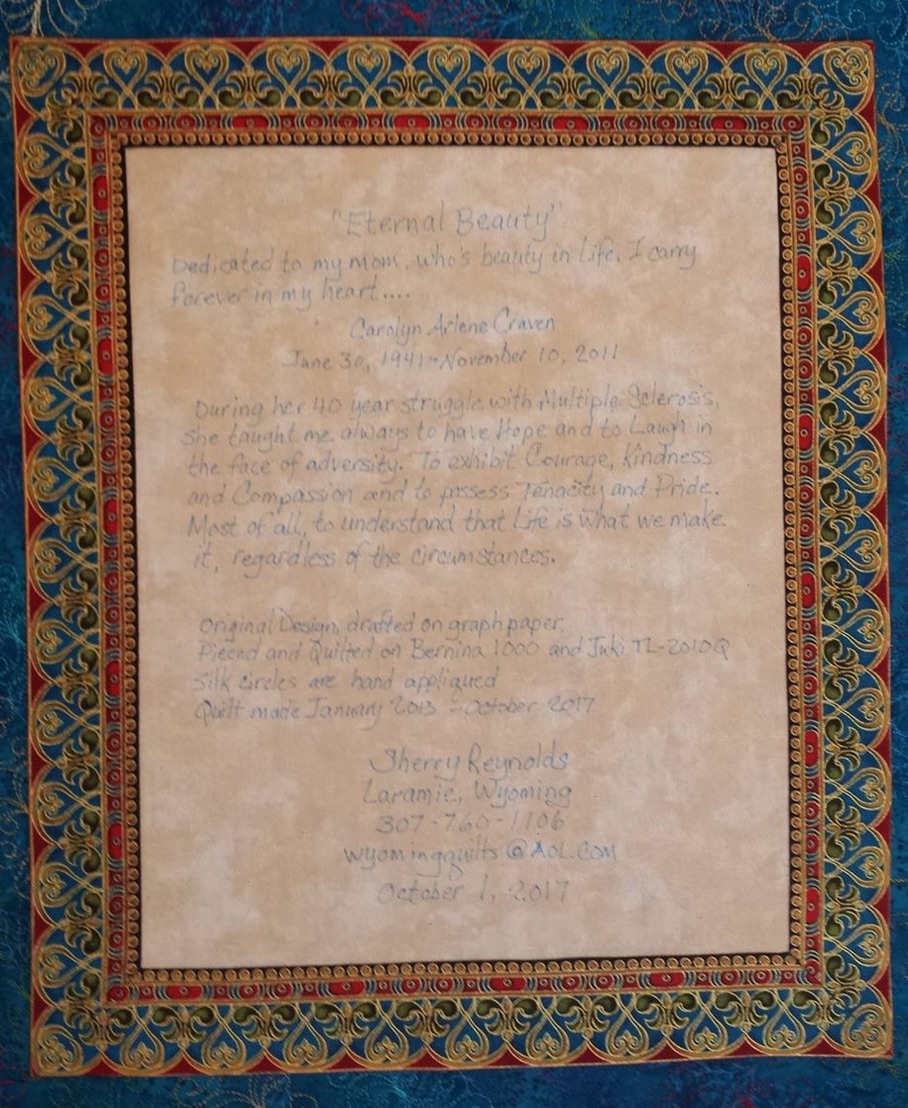 "Eternal Beauty"
Dedicated to my mom, who's beauty in Life, I carry
forever in my heart....
Carolyn Arlene Craven
June 30, 1941-November 10, 2011
During her 40 year struggle with Multiple Sclerosis,
she taught me always to have Hope and to Laugh in
the face of adversity. To exhibit Courage, Kindness
and Compassion and to possess Tenacity and Pride.
Most of all, to understand that Life is what we make
it, regardless of the circumstances.
Original Design, drafted on graph paper.
Pieced and Quilted on Bernina 1000 and Juki TL-2010Q
Silk circles are hand appliqued
Quilt made January 2013 - October 2017
Sherry Reynolds
Laramie, Wyoming
307-760-1106
wyomingquilts@AOL.COM
October 1, 2017